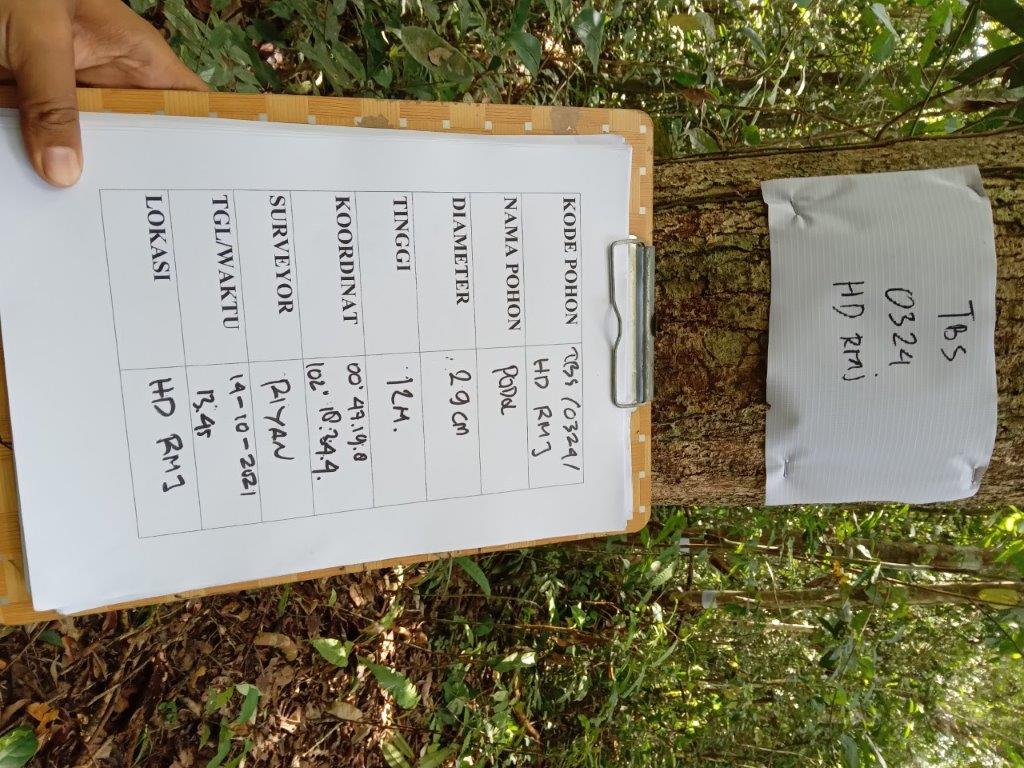 KODE POHON TBS /0324/
HD RMJ
NAMA POHON PODOL
DIAMETER 29 cm
TINGGI 12 M.
KOORDINAT 00' 47.19.0
102' 18.34.4.
SURVEYOR RIYAN
TGL/WAKTU 14-10-2021
13,45
LOKASI HD RMJ
TBS
0324
HD RMJ